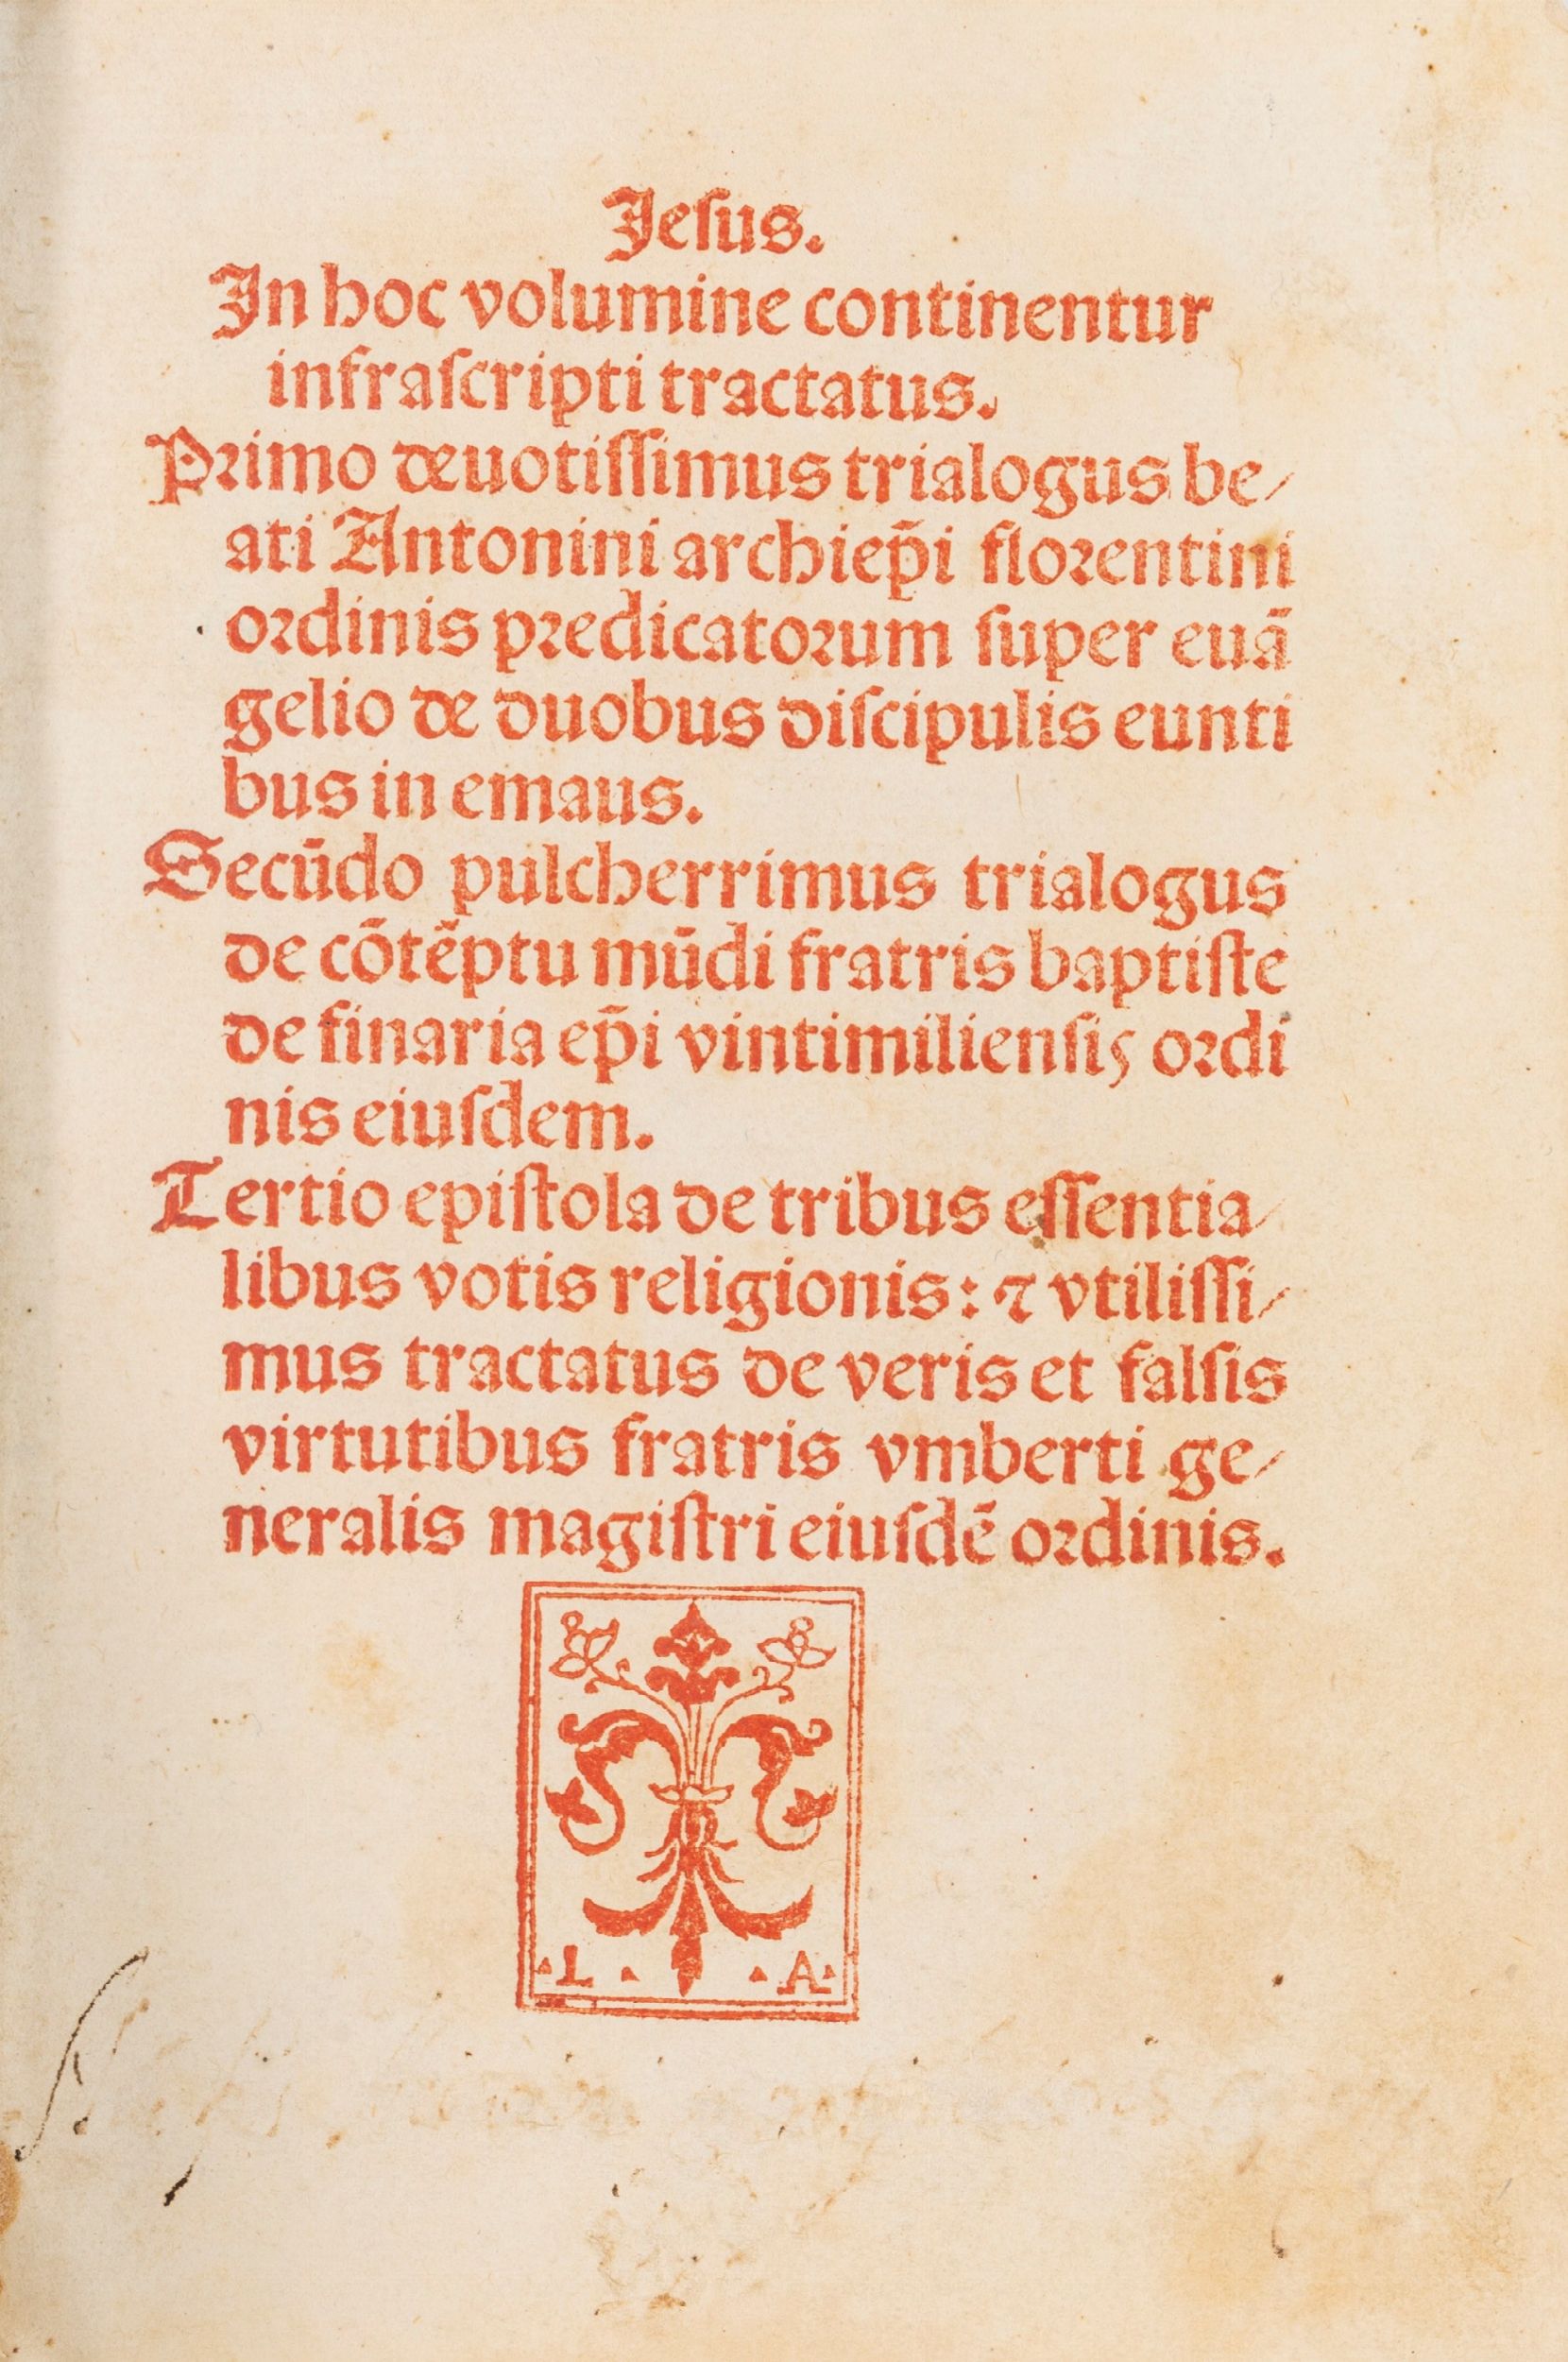 Jeſus.
In hoc volumine continentur
infraſcripti tractatus.
Primo deuotiſſimus trialogus be⸗
ati Antonini archiep̄i florentini
ordinis predicatorum ſuper euā
gelio de duobus diſcipulis eunti
bus in emaus.
Secūdo pulcherrimus trialogus
de cōtēptu mūdi fratris baptiſte
de finaria ep̄i vintimilienſis ordi
nis eiuſdem.
Tertio epiſtola de tribus eſſentia⸗
libus votis religionis: ⁊ vtiliſſi⸗
mus tractatus de veris et falſis
virtutibus fratris vmberti ge⸗
neralis magiſtri eiuſdē ordinis.
L A